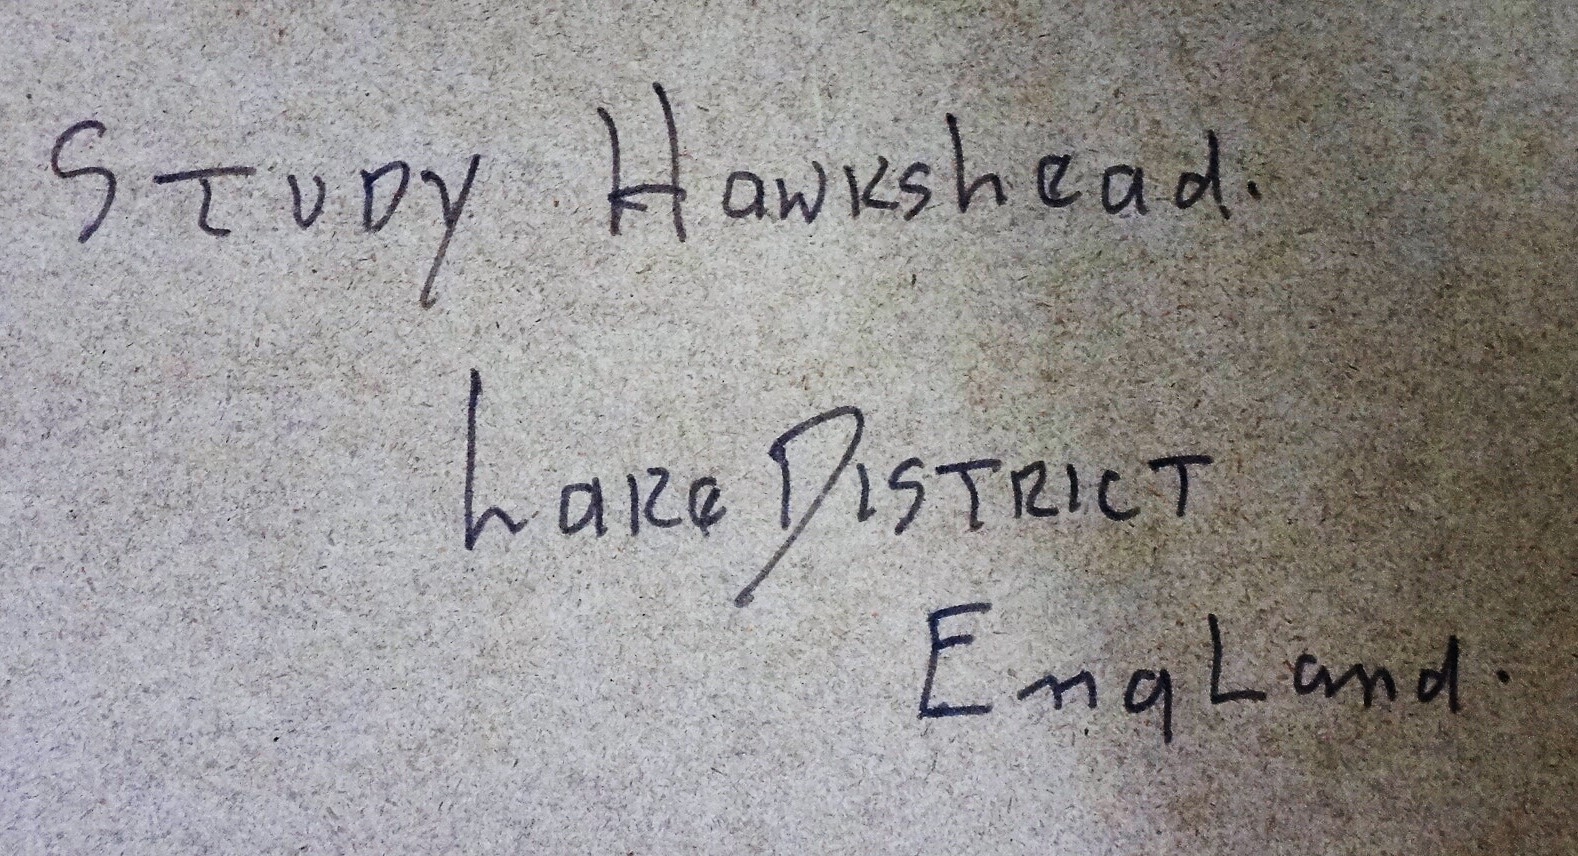 STUDY Hawkshead.
Lake DISTRICT
EngLand.